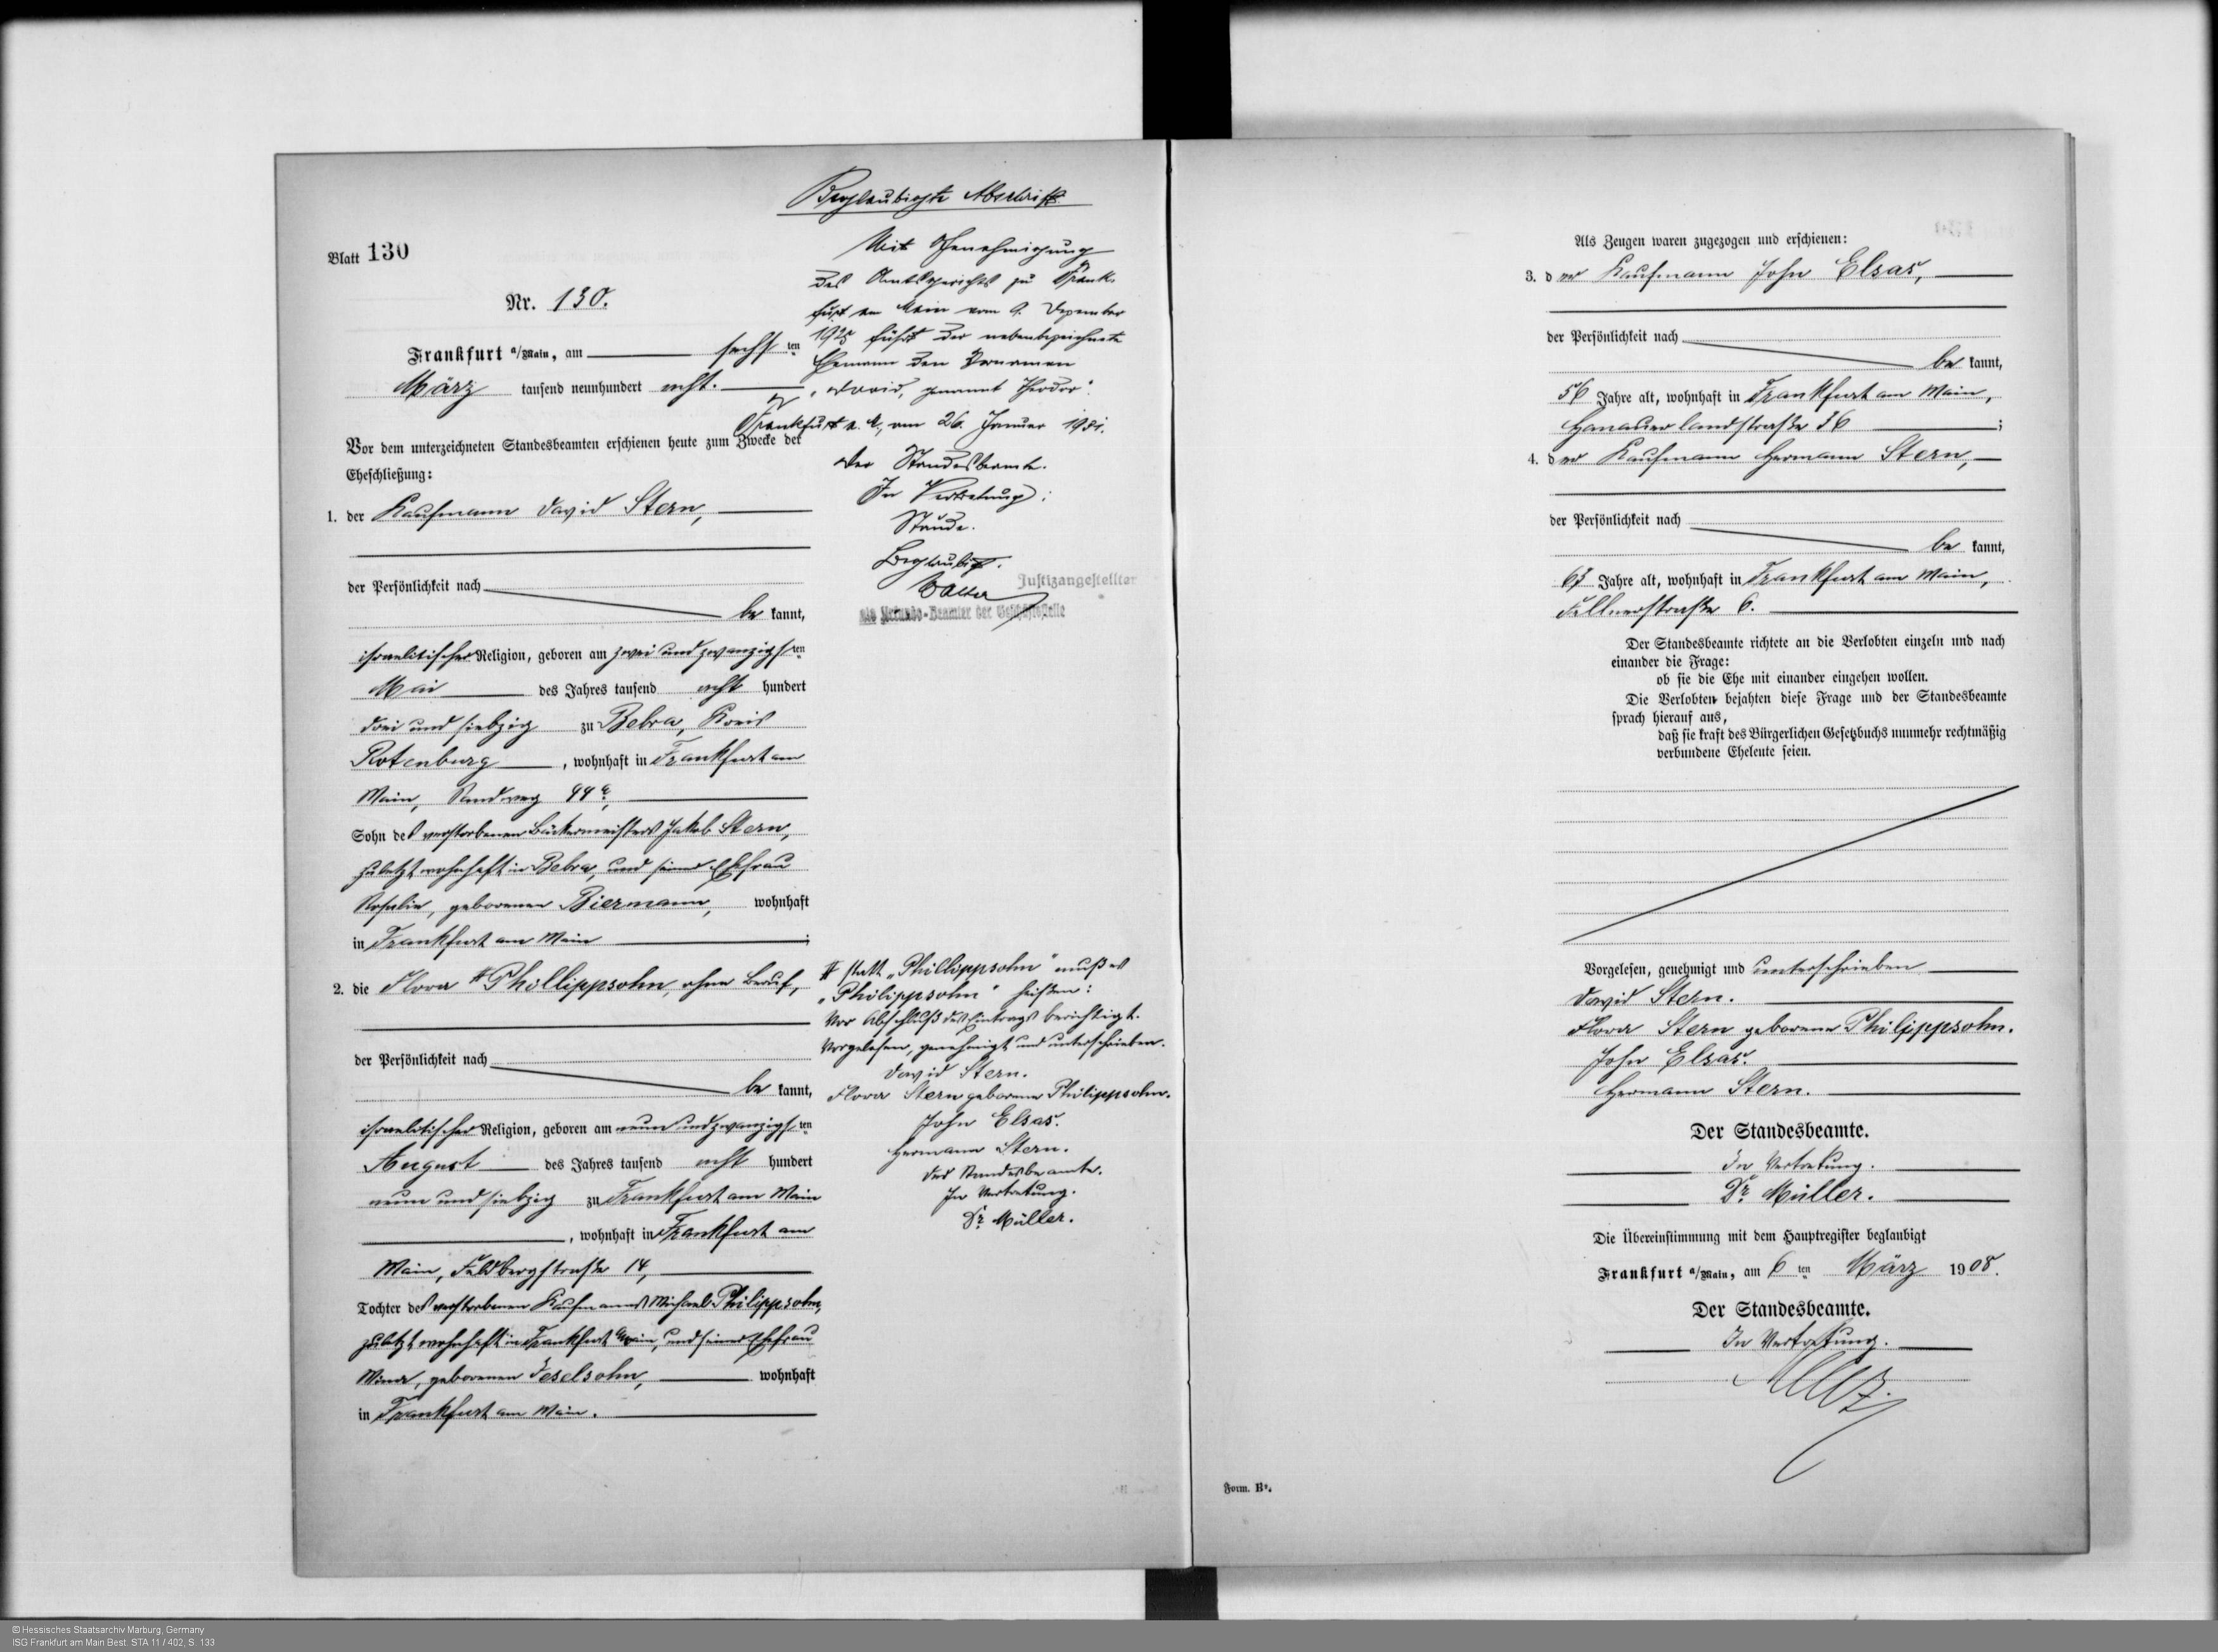 Blatt 130
Nr. 130.
Frankfurt a/Main, am sechsten
März tausend neunhundert acht.
Vor dem unterzeichneten Standesbeamten erschienen heute zum Zwecke der
Eheschließung:
1. der Kaufmann David Stern,
der Persönlichkeit nach
bekannt,
israelitischer Religion, geboren am zwei und zwanzigsten
Mai des Jahres tausend acht hundert
drei und siebzig zu Bebra, Kreis
Rotenburg, wohnhaft in Frankfurt am
Main, Sandweg
Sohn des verstorbenen Bäckermeisters Jakob Stern,
zuletzt wohnhaft in Bebra, und seiner Ehefrau
Rosalie, geborenen Biermann, wohnhaft
in Frankfurt am Main;
2. die Flora # Phillippsohn, ohne Beruf,
der Persönlichkeit nach
bekannt,
israelitischer Religion, geboren am neun und zwanzigsten
August des Jahres tausend acht hundert
neun und siebzig zu Frankfurt am Main
, wohnhaft in Frankfurt am
Main, Feldbergstraße 14,
Tochter des verstorbenen Kaufmanns Michael Philippsohn,
zuletzt wohnhaft in Frankfurt a/Main, und seiner Ehefrau
geborenen Jeselsohn, wohnhaft
in Frankfurt am Main.
Beglaubigte Abschrift
Mit Genehmigung
des Amtsgerichts zu Frank-
furt am Main vom 9. Dezember
1925 führt der nebenbezeichnete
Ehemann den Vornamen
"David, genannt Theodor".
Frankfurt a. M., am 26. Januar 1931.
Der Standesbeamte.
In Vertretung:
Staude.
Beglaubigt.
Justizangestellter
als Urkunds-Beamter der Geschäftsstelle
# statt "Phillippsohn" muß es
"Philippsohn" heißen:
Vor Abschluß des Eintrags berichtigt.
Vorgelesen, genehmigt und unterschrieben.
David Stern.
Flora Stern geborene Philippsohn.
John Elsas.
Hermann Stern.
Der Standesbeamte.
In Vertretung.
Dr. Müller.
Als Zeugen waren zugezogen und erschienen:
3. der Kaufmann John Elsas,
der Persönlichkeit nach
bekannt,
56 Jahre alt, wohnhaft in Frankfurt am Main,
Hanauerlandstraße 36;
4. der Kaufmann Hermann Stern,
der Persönlichkeit nach
bekannt,
Jahre alt, wohnhaft in Frankfurt am Main,
Fellnerstraße 6.
Der Standesbeamte richtete an die Verlobten einzeln und nach
einander die Frage:
ob sie die Ehe mit einander eingehen wollen.
Die Verlobten bejahten diese Frage und der Standesbeamte
sprach hierauf aus,
daß sie kraft des Bürgerlichen Gesetzbuchs nunmehr rechtmäßig
verbundene Eheleute seien.
Vorgelesen, genehmigt und unterschrieben
David Stern.
Flora Stern geborene Philippsohn.
John Elsas.
Hermann Stern.
Der Standesbeamte.
In Vertretung.
Dr. Müller.
Die Übereinstimmung mit dem Hauptregister beglaubigt
Frankfurt a/Main, am 6ten März 1908.
Der Standesbeamte.
In Vertretung.
Form. B².
© Hessisches Staatsarchiv Marburg, Germany
ISG Frankfurt am Main Best. STA 11 / 402, S. 133